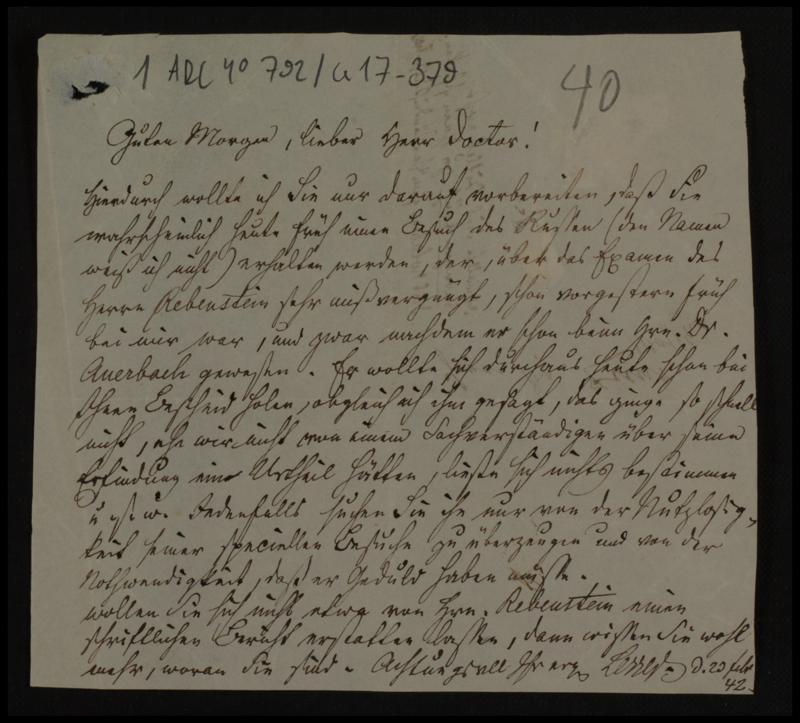 1 ARC 4° 792/a 17-379
40
Guten Morgen, lieber Herr Doctor!
Hierdurch wollte ich Sie nur darauf vorbereiten, daß Sie
wahrscheinlich heute früh einen Besuch des Russen (den Namen
weiß ich nicht) erhalten werden, der, über das Examen des
Herrn Rebenstein sehr mißvergnügt, schon vorgestern früh
bei mir war, und zwar nachdem er schon beim Hrn. Dr.
Auerbach gewesen. Er wollte sich durchaus heute schon bei
Ihnen Bescheid holen, obgleich ich ihm gesagt, das ginge so schnell
nicht, ehe wir nicht von einem Sachverständigen über seine
Erfindung ein Urtheil hätten, ließe sich nichts bestimmen
u. s. w. Jedenfalls suchen Sie ihn nur von der Nutzlosig-
keit seiner speciellen Besuche zu überzeugen und von der
Nothwendigkeit, daß er Geduld haben müsse.
Wollen Sie sich nicht etwa von Hrn. Rebenstein einen
schriftlichen Bericht erstatten lassen, dann wissen Sie wohl
mehr, woran Sie sind. Achtungsvoll Ihr erg. d. 23 Febr
42.